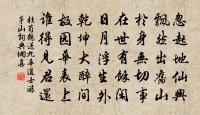 忽起地仙興
飄然出舊山
於身無切事
在世有餘閒
日月浮生外
乾坤大醉間
故園華表上
誰得見君還
杜荀鶴送九華道士遊
茅山詞典網